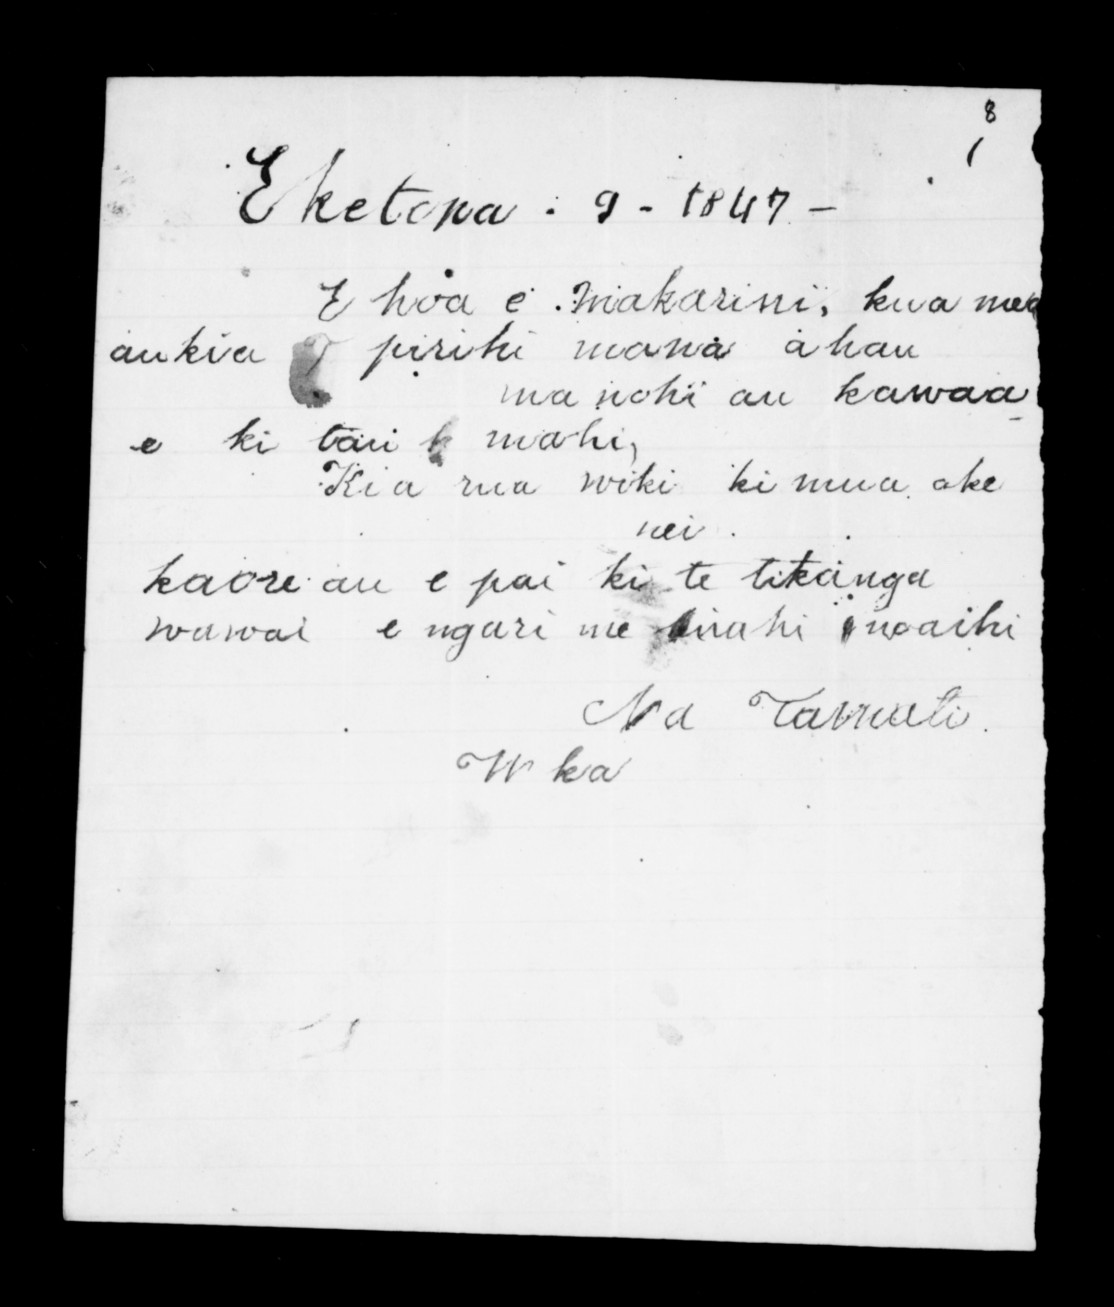 8
1
Eketona . 9 - 1847 -
E hoa e . Makarini, kua mea
au kia pirihi mana ahau
ma nohi au kawaa
e ki tau mahi,
Kia rua wiki ki mua ake
nei .
kaore au e pai ki te tikanga
wawai e ngari me mahi noaihi
Na Tamati
W ka